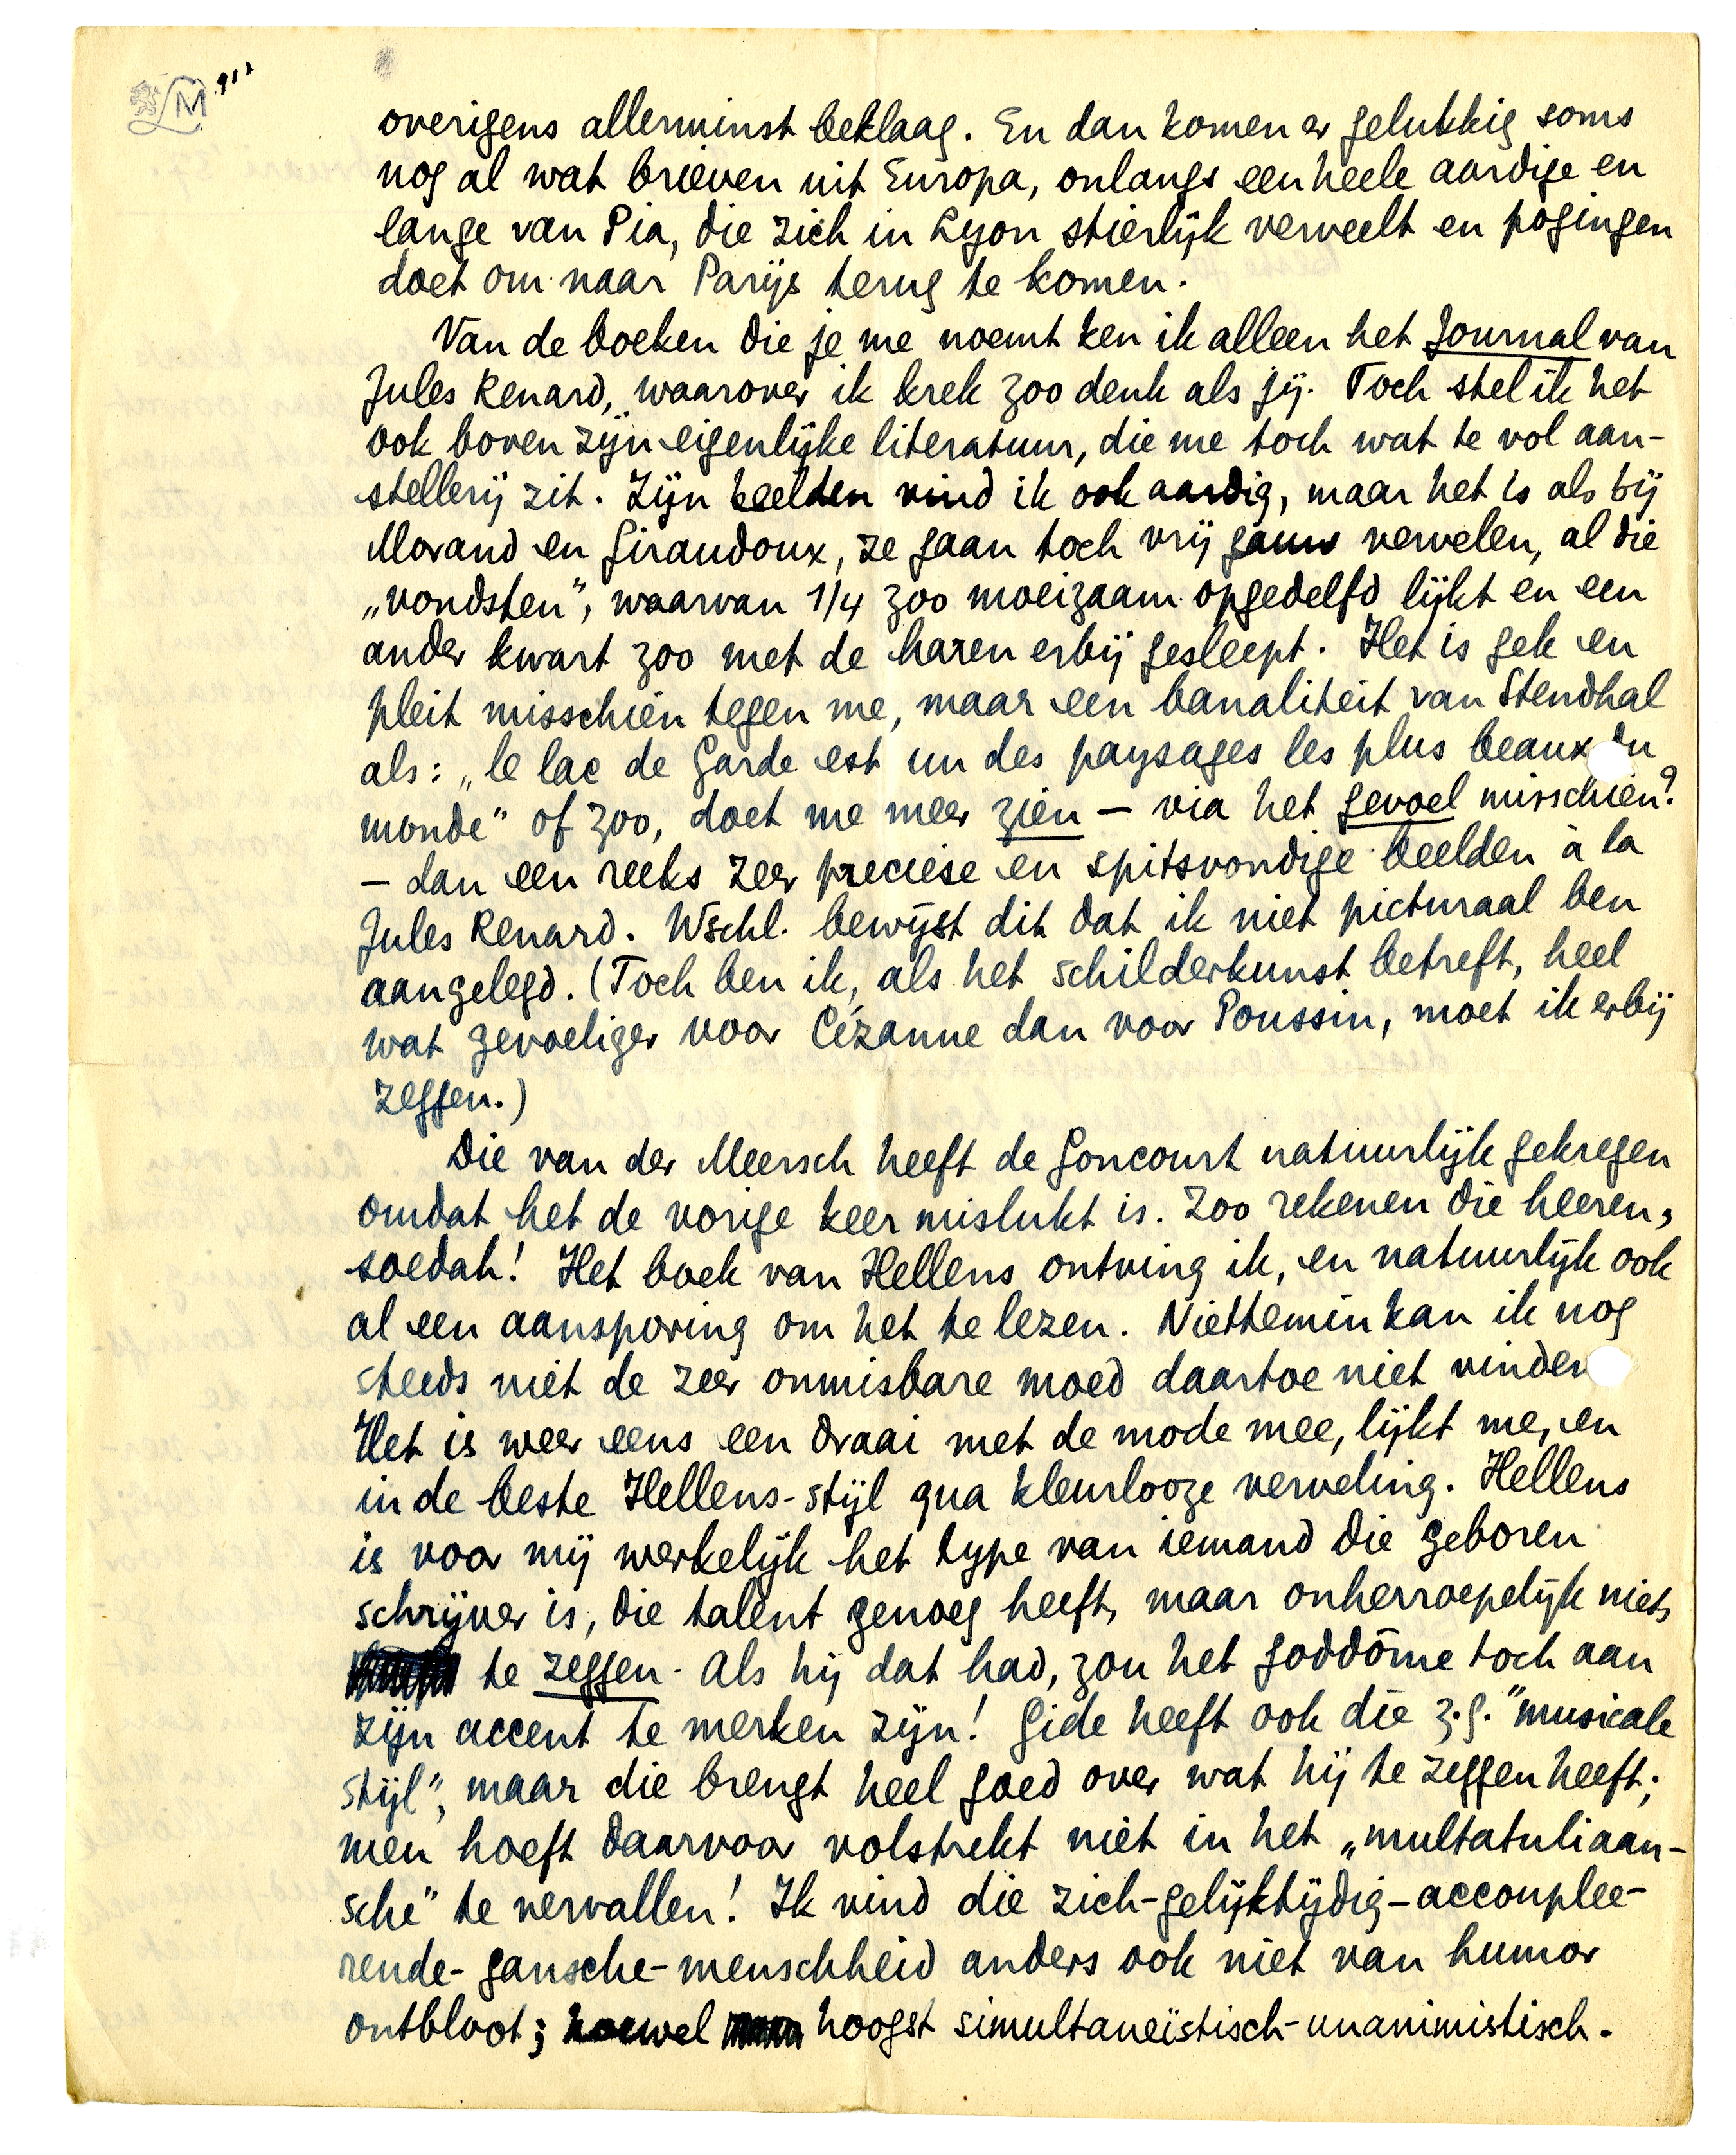 M 912
overigens allerminst beklaag. En dan komen er gelukkig soms
nog al wat brieven uit Europa, onlangs een heele aardige en
lange van Pia, die zich in Lyon stierlijk verveelt en pogingen
doet om naar Parijs terug te komen.
Van de boeken die je me noemt ken ik alleen het Journal van
Jules Renard, waarover ik krek zoo denk als jij. Toch stel ik het
ook boven zijn eigenlijke literatuur, die me toch wat te vol aan-
stellerij zit. Zijn beelden vind ik ook aardig, maar het is als bij
Morand en Giraudoux, ze gaan toch vrij gauw vervelen, al die
„vondsten", waarvan 1/4 zoo moeizaam opgedelfd lijkt en een
ander kwart zoo met de haren erbij gesleept. Het is gek en
pleit misschien tegen me, maar een banaliteit van Stendhal
als: „le lac de Garde est un des paysages les plus beaux du
monde" of zoo, doet me meer zien — via het gevoel misschien?
— dan een reeks zeer preciese en spitsvondige beelden à la
Jules Renard. Wschl. bewijst dit dat ik niet picturaal ben
aangelegd. (Toch ben ik, als het schilderkunst betreft, heel
wat gevoeliger voor Cézanne dan voor Poussin, moet ik erbij
zeggen.)
Die van der Meersch heeft de Goncourt natuurlijk gekregen
omdat het de vorige keer mislukt is. Zoo rekenen die heeren,
soedah! Het boek van Hellens ontving ik, en natuurlijk ook
al een aansporing om het te lezen. Niettemin kan ik nog
steeds niet de zeer onmisbare moed daartoe niet vinden
Het is weer eens een draai met de mode mee, lijkt me, en
in de beste Hellens-stijl qua kleurlooze verveling. Hellens
is voor mij werkelijk het type van iemand die geboren
schrijver is, die talent genoeg heeft, maar onherroepelijk niets
te zeggen. Als hij dat had, zou het goddòme toch aan
zijn accent te merken zijn! Gide heeft ook die z.g. "musicale
stijl", maar die brengt heel goed over wat hij te zeggen heeft;
men hoeft daarvoor volstrekt niet in het „multatuliaan-
sche" te vervallen! Ik vind die zich-gelijktijdig-accouplee-
rende-gansche-menschheid anders ook niet van humor
ontbloot; hoewel hoogst simultaneïstisch-unanimistisch.